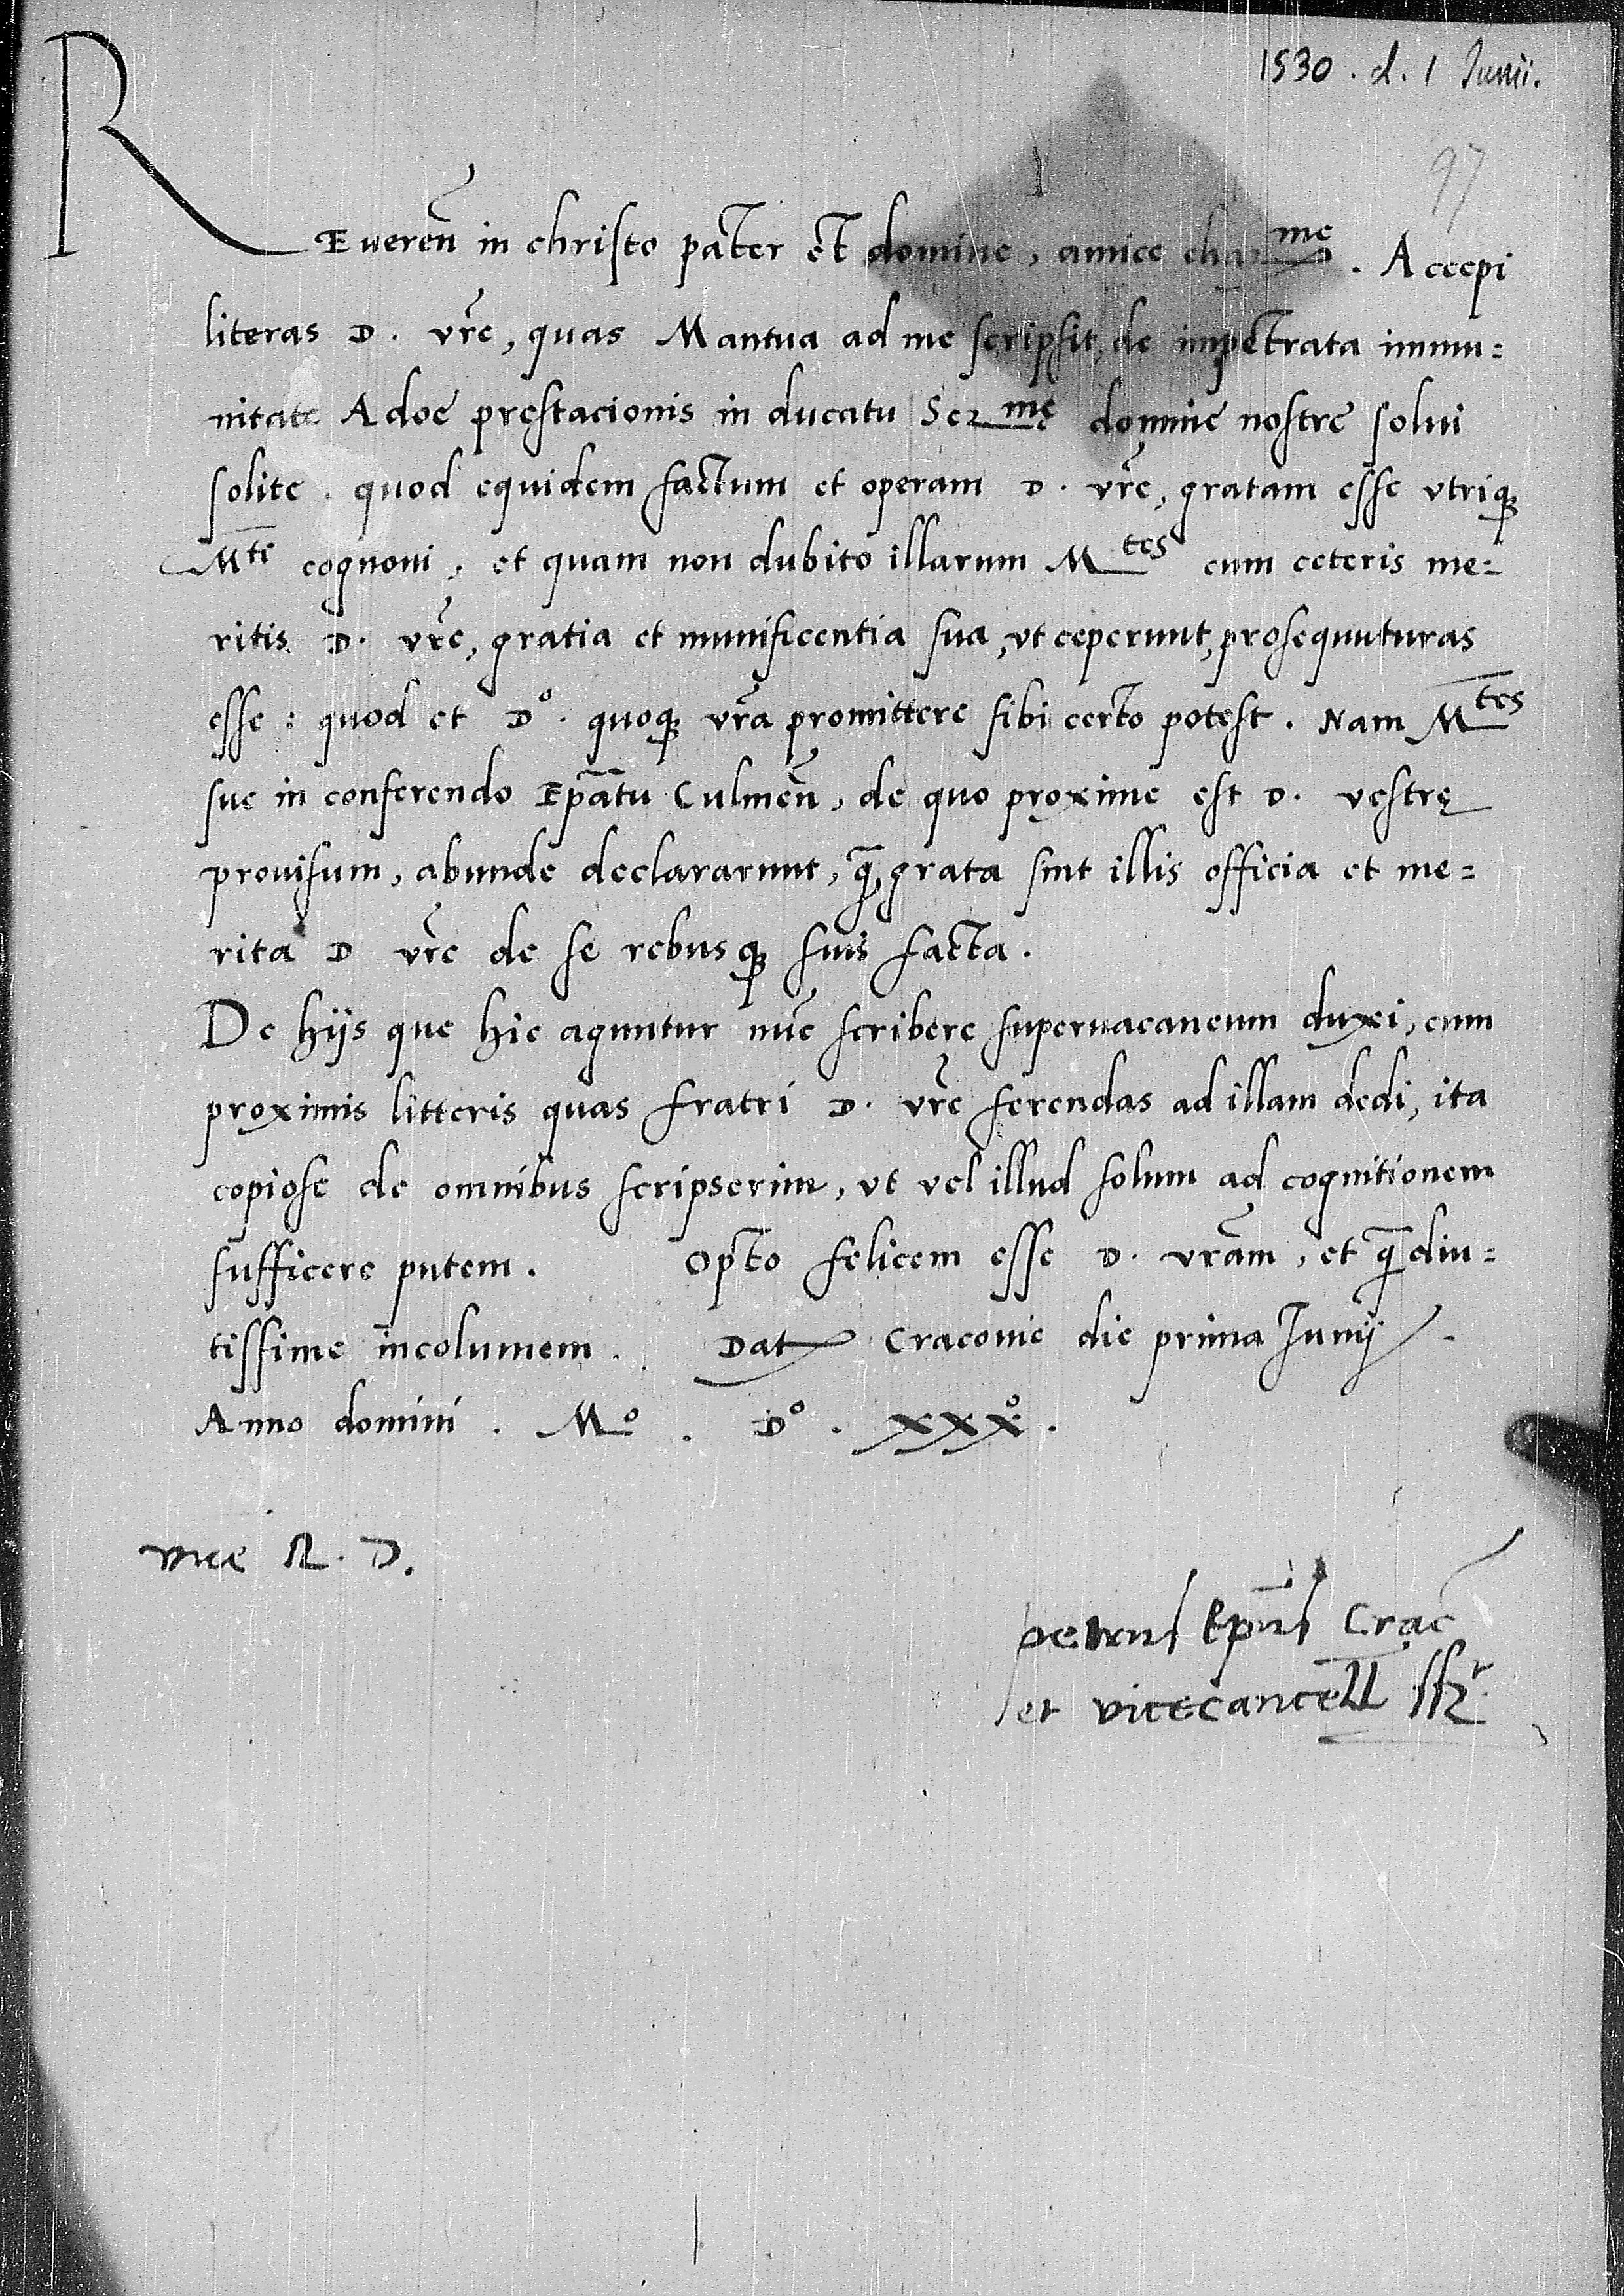 1530 . d. 1 Junii.
97
REueren̄ in christo pater et domine, amice char^me . Accepi
literas D. vr̄e, quas Mantua ad me scripsit, de impetrata immu=
nitate Adoe prestacionis in ducatu Ser^me domine nostre solui
solite . quod equidem factum et operam D. vr̄e, gratam esse vtriq₃
M^ti cognoui, et quam non dubito illarum M^tes cum ceteris me=
ritis D. vr̄e, gratia et munificentia sua, vt ceperunt, prosequuturas
esse : quod et D^o. quoq₃ vr̄a promittere sibi certo potest . Nam M^tes
sue in conferendo Ep̄atu Culmen̄, de quo proxime est D. vestrę
prouisum, abunde declararunt, q̄ grata sint illis officia et me=
rita D vr̄e de se rebusq₃ suis facta .
De hijs que hic aguntur nūc scribere superuacaneum duxi, cum
proximis litteris quas fratri D. vr̄e ferendas ad illam dedi, ita
copiose de omnibus scripserim, vt vel illud solum ad cognitionem
sufficere putem . Opto felicem esse D. vr̄am, et q̄ diu=
tissime incolumem . Dat Cracouie die prima Junij .
Anno domini . M^o . D^o . xxx^o .
vr̄ae R. D.
petrus Ep̄us Crac̄
et vicecancell̄ ssz^r